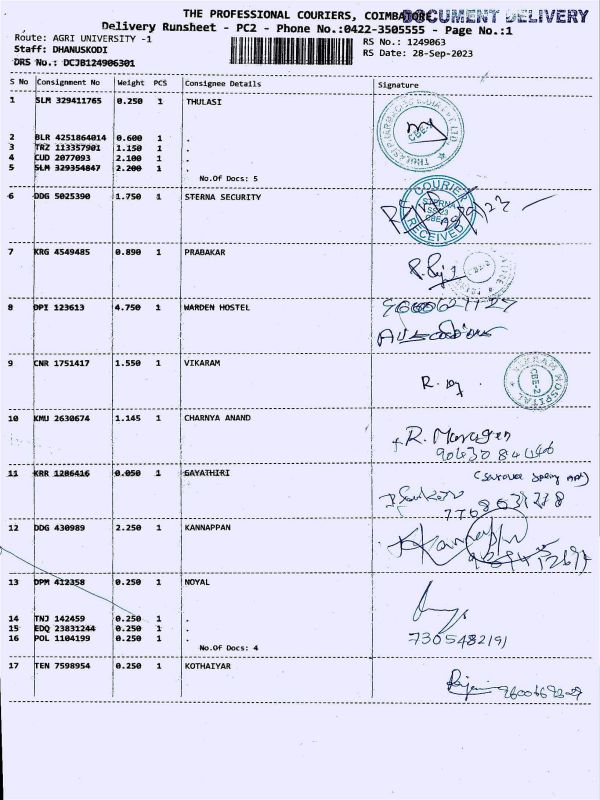 THE PROFESSIONAL COURIERS, COIMBATORE
DOCUMENT DELIVERY
Delivery Runsheet - PC2 - Phone No.:0422-3505555 - Page No.:1
Route: AGRI UNIVERSITY -1
RS No.: 1249063
Staff: DHANUSKODI
RS Date: 28-Sep-2023
DRS No.: DCJB124906301
S No Consignment No Weight PCS Consignee Details Signature
1 SLM 329411765 0.250 1 THULASI
2 BLR 4251864014 0.600 1 .
3 TRZ 113357901 1.150 1 .
4 CUD 2077093 2.100 1 .
5 SLM 329354847 2.200 1 .
No.Of Docs: 5
6 DDG 5025390 1.750 1 STERNA SECURITY
COURIER
RECEIVED
7 KRG 4549485 0.890 1 PRABAKAR
8 DPI 123613 4.750 1 WARDEN HOSTEL
9 CNR 1751417 1.550 1 VIKARAM
VIKRAM HOSPITAL
CBE-2
10 KMU 2630674 1.145 1 CHARNYA ANAND
R. Murugen
11 KRR 1286416 0.050 1 GAYATHIRI
12 DDG 430989 2.250 1 KANNAPPAN
13 DPM 412358 0.250 1 NOYAL
14 TNJ 142459 0.250 1 .
15 EDQ 23831244 0.250 1 .
16 POL 1104199 0.250 1 .
No.Of Docs: 4
7305482191
17 TEN 7598954 0.250 1 KOTHAIYAR